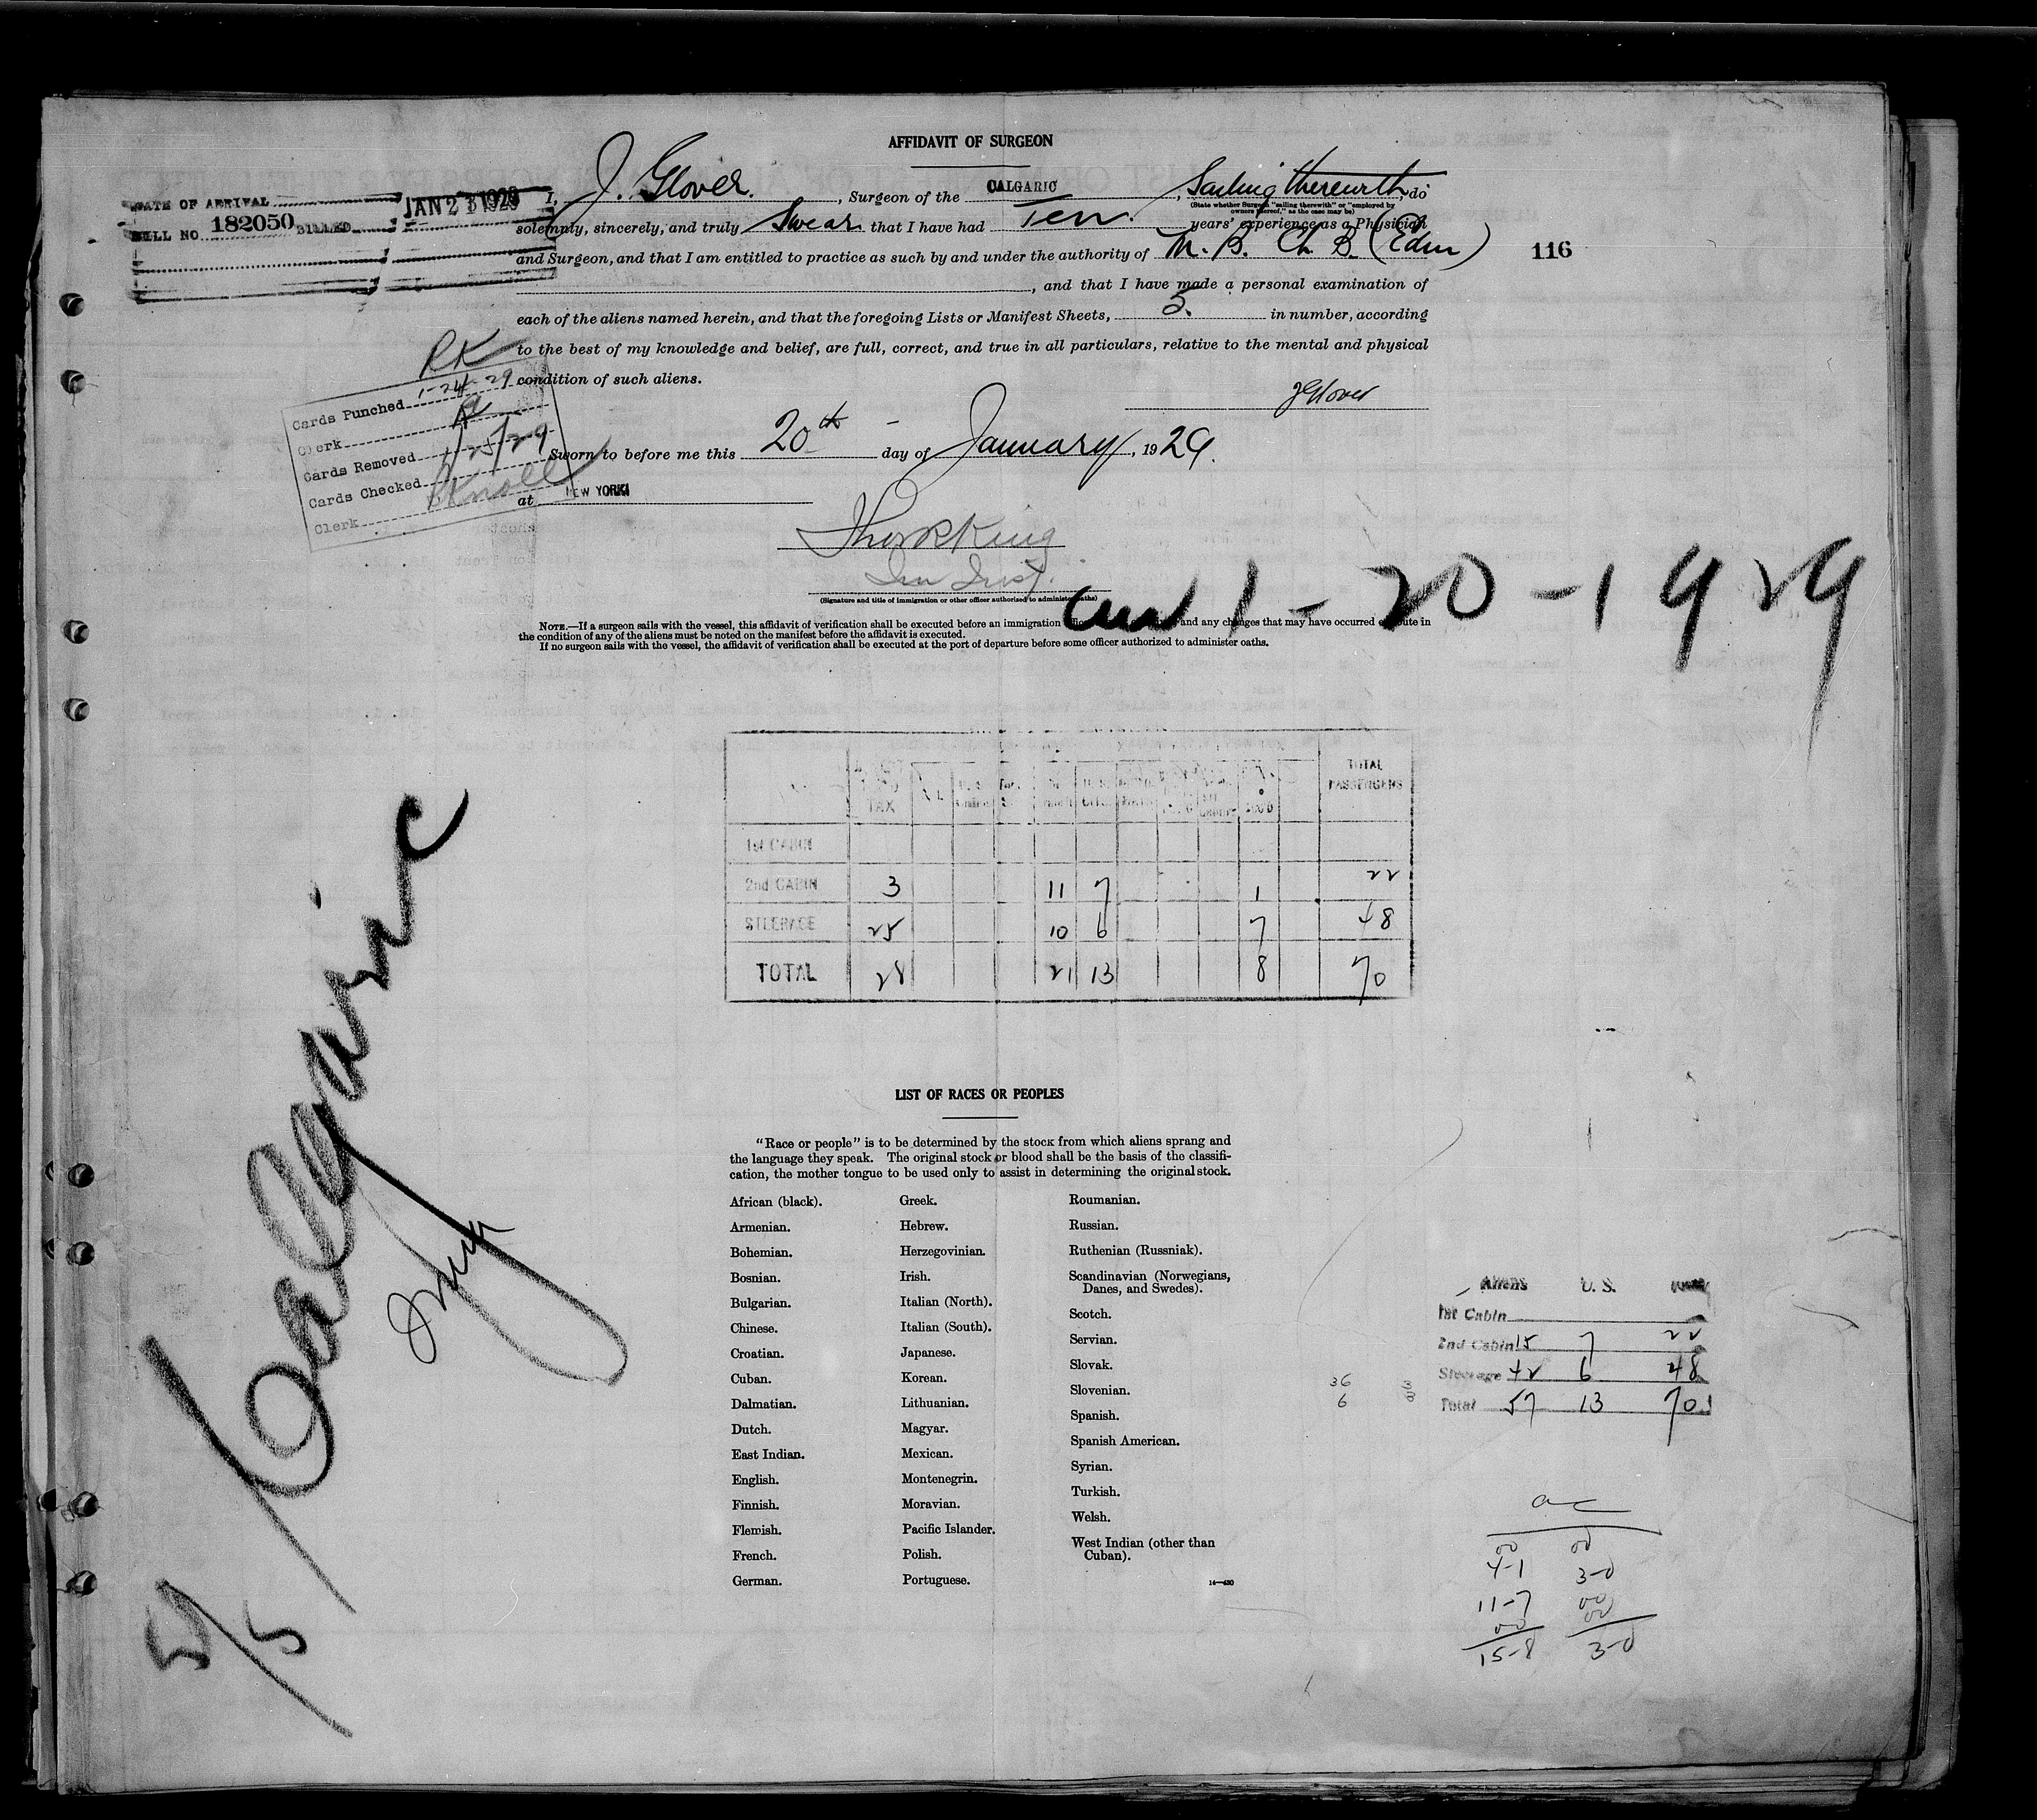 AFFIDAVIT OF SURGEON
DATE OF ARRIVAL JAN 23 1929
BILL NO. 182050 BILLED
I, J. Glover. , Surgeon of the CALGARIC , Sailing therewith , do
(State whether Surgeon "sailing therewith" or "employed by
owners thereof," as the case may be)
solemnly, sincerely, and truly Swear that I have had Ten. years' experience as a Physician
and Surgeon, and that I am entitled to practice as such by and under the authority of M. B. Ch. B. (Edin)
116
, and that I have made a personal examination of
each of the aliens named herein, and that the foregoing Lists or Manifest Sheets, 5. in number, according
to the best of my knowledge and belief, are full, correct, and true in all particulars, relative to the mental and physical
condition of such aliens.
JGlover
RK
Cards Punched 1-24-29
Clerk
Cards Removed 1/25/29
Cards Checked
Clerk Knoll
Sworn to before me this 20th day of January, 1929.
at NEW YORK
King
(Signature and title of immigration or other officer authorized to administer oaths)
1-20-1929
NOTE.—If a surgeon sails with the vessel, this affidavit of verification shall be executed before an immigration and any changes that may have occurred en route in
the condition of any of the aliens must be noted on the manifest before the affidavit is executed.
If no surgeon sails with the vessel, the affidavit of verification shall be executed at the port of departure before some officer authorized to administer oaths.
TAX TOTAL PASSENGERS
1st CABIN
2nd CABIN 3 11 7 1 22
STEERAGE 25 10 6 7 48
TOTAL 28 21 13 8 70
Calgaric
5/5
LIST OF RACES OR PEOPLES
"Race or people" is to be determined by the stock from which aliens sprang and
the language they speak. The original stock or blood shall be the basis of the classifi-
cation, the mother tongue to be used only to assist in determining the original stock.
African (black).
Armenian.
Bohemian.
Bosnian.
Bulgarian.
Chinese.
Croatian.
Cuban.
Dalmatian.
Dutch.
East Indian.
English.
Finnish.
Flemish.
French.
German.
Greek.
Hebrew.
Herzegovinian.
Irish.
Italian (North).
Italian (South).
Japanese.
Korean.
Lithuanian.
Magyar.
Mexican.
Montenegrin.
Moravian.
Pacific Islander.
Polish.
Portuguese.
Roumanian.
Russian.
Ruthenian (Russniak).
Scandinavian (Norwegians,
Danes, and Swedes).
Scotch.
Servian.
Slovak.
Slovenian.
Spanish.
Spanish American.
Syrian.
Turkish.
Welsh.
West Indian (other than
Cuban).
14—430
Aliens U. S. Total
1st Cabin
2nd Cabin 15 7 22
Steerage 42 6 48
Total 57 13 70
36
6
ac
00 00
4-1 3-0
11-7 00
00 00
15-8 3-0